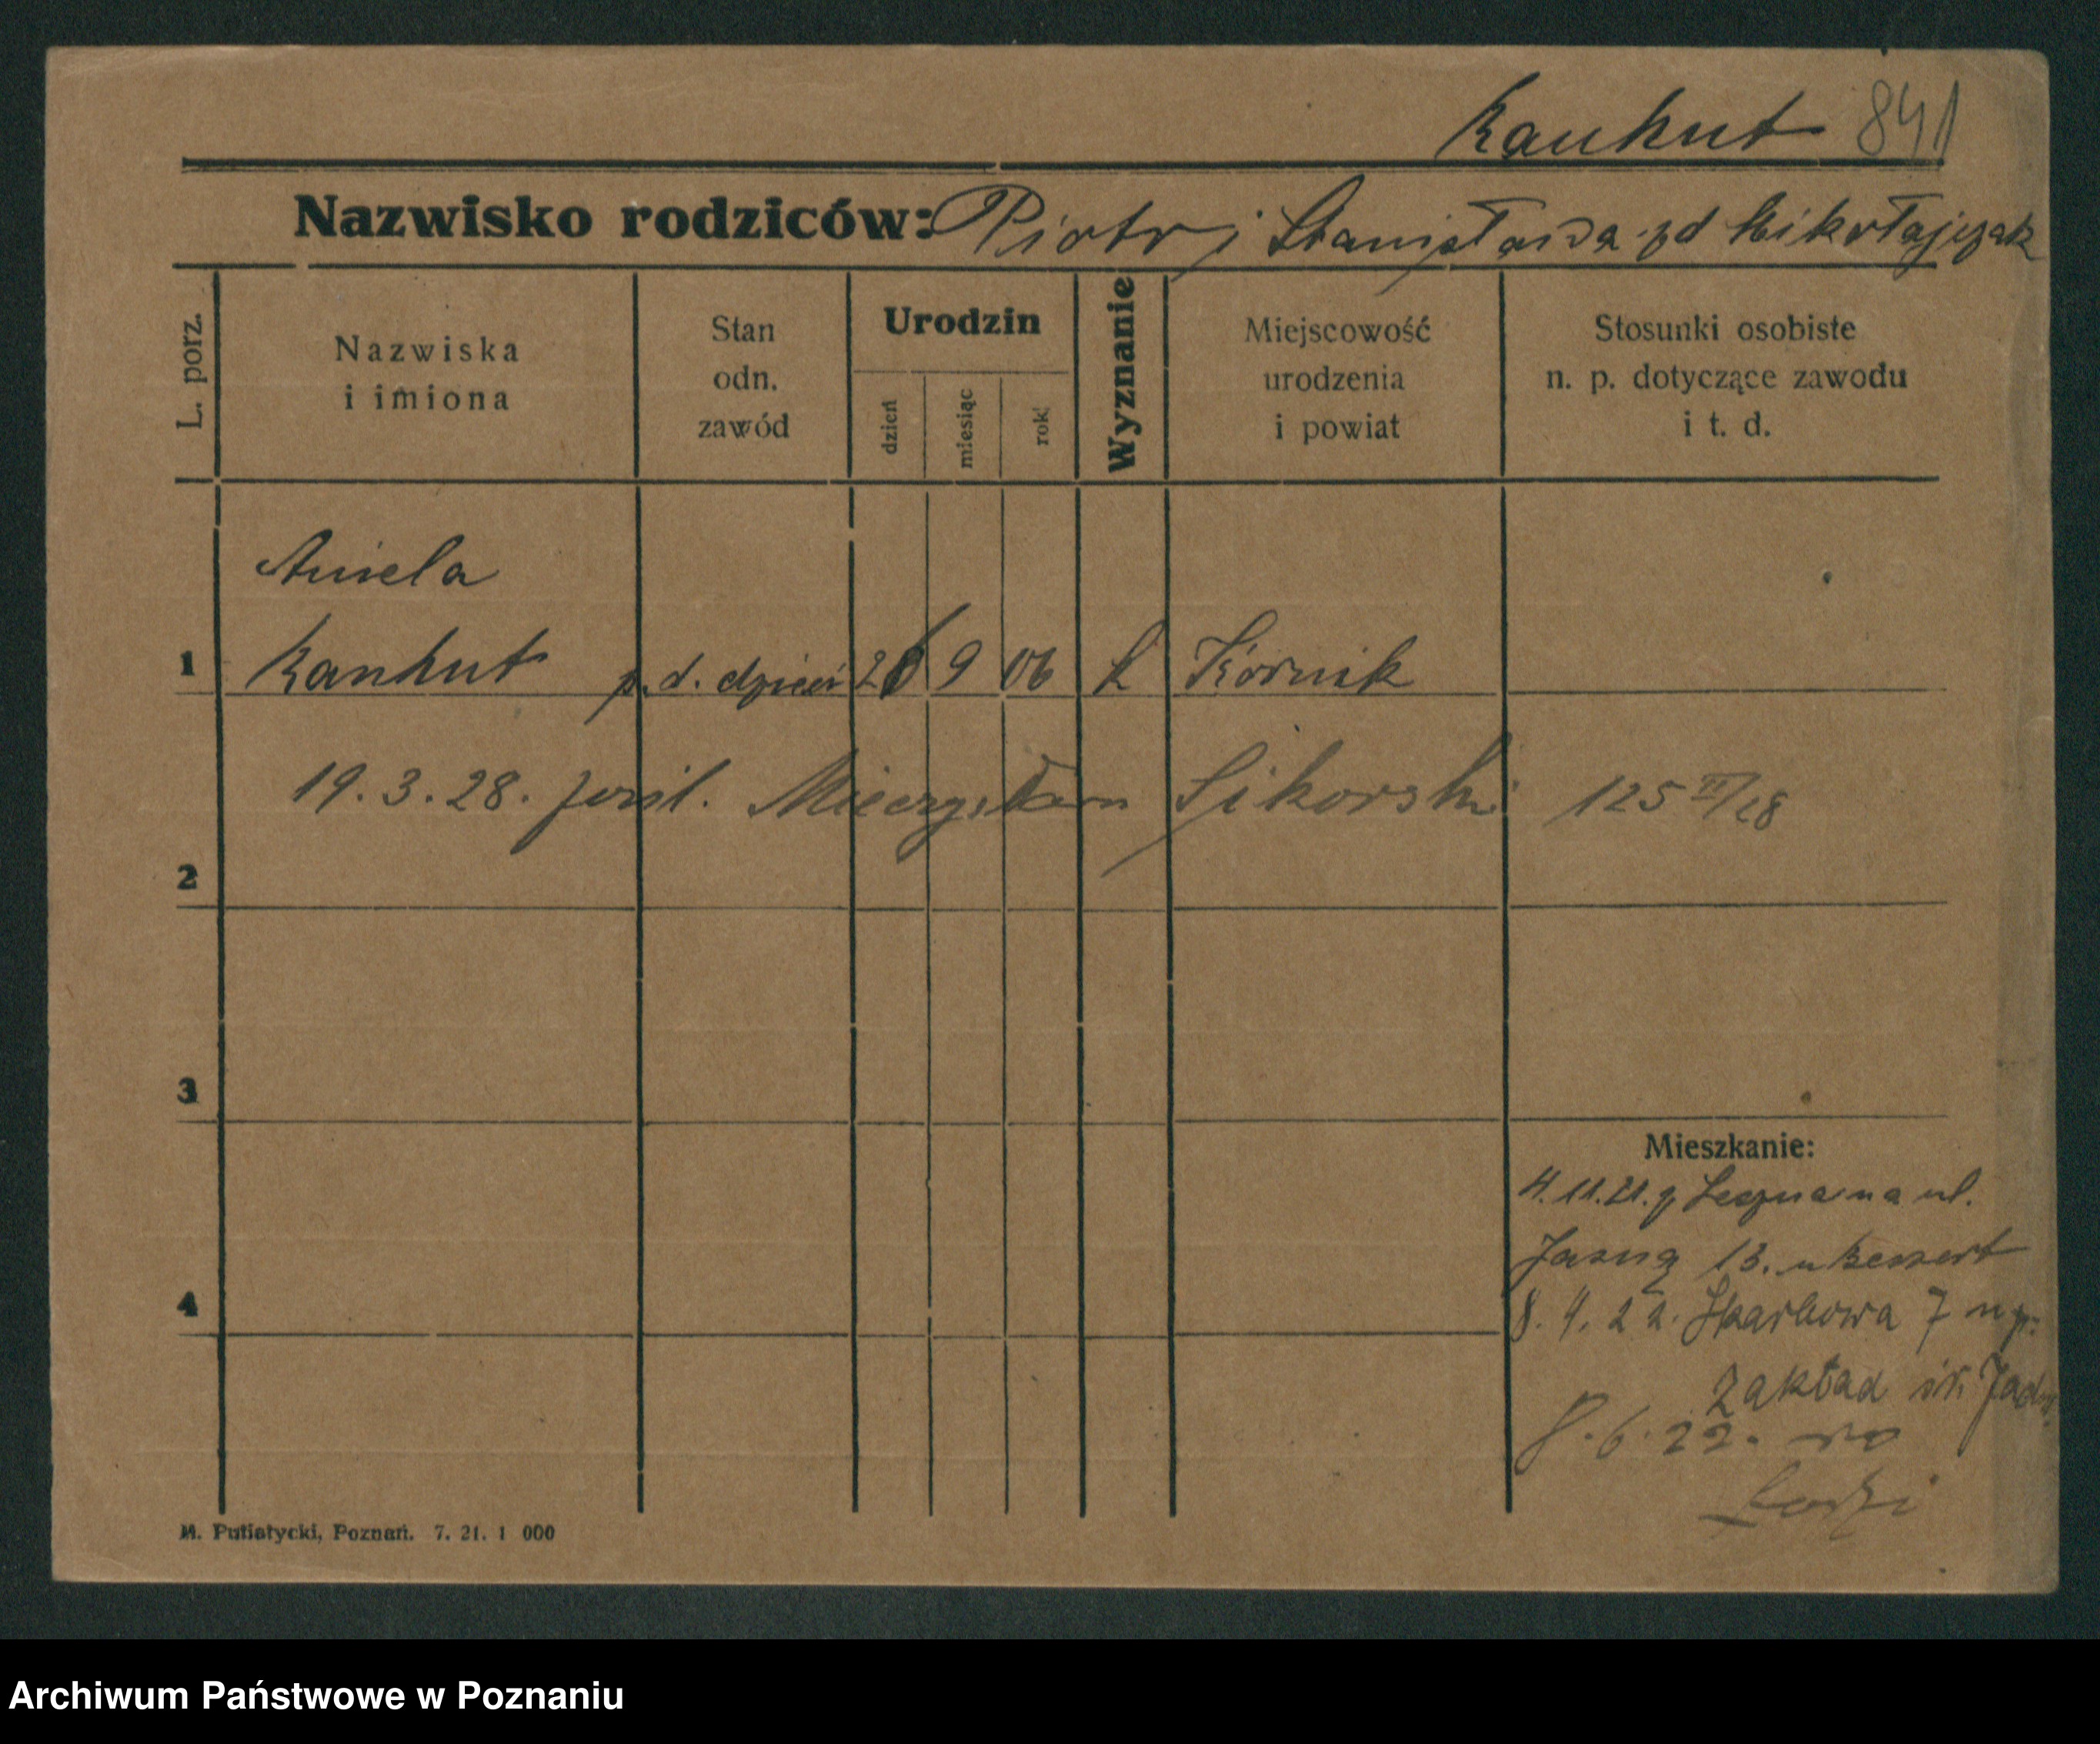 Kanhut 841
Nazwisko rodziców: Piotr i Stanisława zd Mikołajczak
L. porz.
Nazwiska
i imiona
Stan
odn.
zawód
Urodzin
dzień
miesiąc
rok
Wyznanie
Miejscowość
urodzenia
i powiat
Stosunki osobiste
n. p. dotyczące zawodu
i t. d.
Aniela
1 Kanhut p. d. dzień 26 9 06 k Kórnik
19.3.28. Mieczysław Sikorski 125 II/28
2
3
Mieszkanie:
4.11.21. z Leszna na ul.
Jasną 13. u
4
8. 4. 22. Skarbowa 7 u
Zakład św. Jadw.
8.6.22. do
Łodzi
M. Putiatycki, Poznań. 7. 21. 1 000
Archiwum Państwowe w Poznaniu